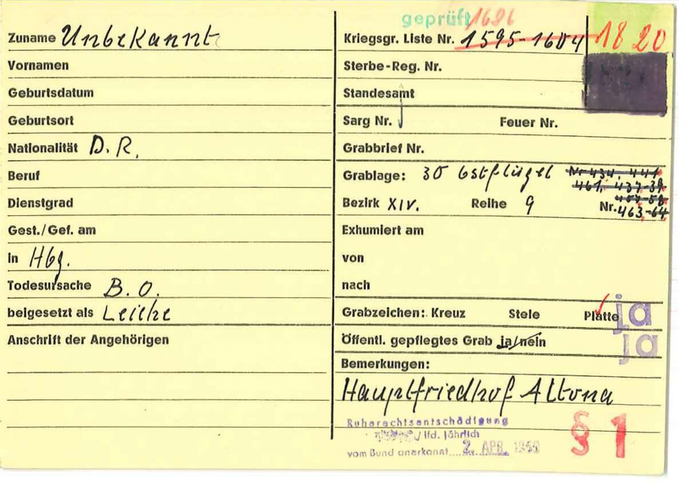 geprüft 1626
Zuname Unbekannt
Vornamen
Geburtsdatum
Geburtsort
Nationalität D.R.
Beruf
Dienstgrad
Gest./Gef. am
in Hbg.
Todesursache B.O.
beigesetzt als Leiche
Anschrift der Angehörigen
Kriegsgr. Liste Nr. 1595-1604 1820
Sterbe-Reg. Nr.
Standesamt
Sarg Nr. Feuer Nr.
Grabbrief Nr.
Grablage: 30 Ostflügel Nr 434. 441
461. 437-39
Bezirk XIV. Reihe 9 Nr. 457-58
463-64
Exhumiert am
von
nach
Grabzeichen: Kreuz Stele Platte ja
Öffentl. gepflegtes Grab ja/nein ja
Bemerkungen:
Hauptfriedhof Altona
Ruherechtsentschädigung
/ lfd. jährlich
vom Bund anerkannt 2. APR.
§ 1